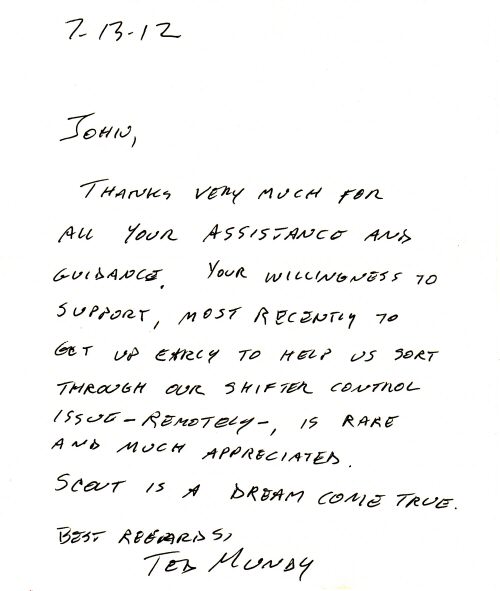 7-13-12
JOHN,
THANKS VERY MUCH FOR
ALL YOUR ASSISTANCE AND
GUIDANCE. YOUR WILLINGNESS TO
SUPPORT, MOST RECENTLY TO
GET UP EARLY TO HELP US SORT
THROUGH OUR SHIFTER CONTROL
ISSUE - REMOTELY -, IS RARE
AND MUCH APPRECIATED.
SCOUT IS A DREAM COME TRUE.
BEST REGARDS,
TED MUNDY